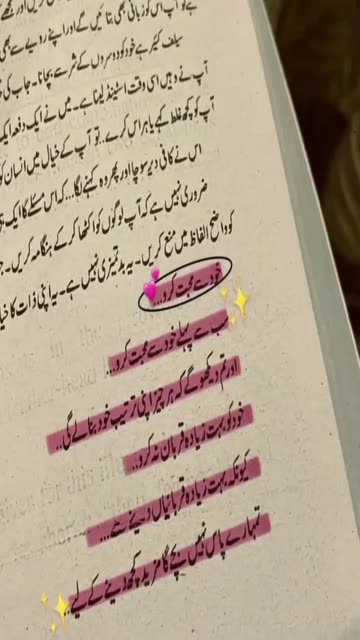 ہے تو آپ اس کو زبانی بھی بتائیں گے اور اپنے رویے سے بھی
سیلف کیئر ہے خود کو دوسروں کے شر سے بچانا۔ جاب کی
آپ نے وہیں اسی وقت اسٹینڈ لینا ہے۔ میں نے ایک دفعہ ایک
آپ کو کچھ غلط کہے یا ہراس کرے۔ تو آپ کے خیال میں انسان کو
اس نے کافی دیر سوچا اور پھر وہ کہنے لگا... کہ اس مسئلے کا ایک ہی
ضروری نہیں ہے کہ آپ لوگوں کو اکٹھا کر کے ہنگامہ کریں۔
کو واضح الفاظ میں منع کریں۔ یہ بدتمیزی نہیں ہے۔ یہ اپنی ذات کا خیا
خود سے محبت کرو...
سب سے پہلے خود سے محبت کرو..
اور تم دیکھو گے کہ ہر چیز اپنی ترتیب خود بنا لے گی..
خود کو بہت زیادہ قربان نہ کرو..
کیونکہ بہت زیادہ قربانیاں دینے سے...
تمہارے پاس نہیں بچے گا مزید کچھ دینے کے لیے..